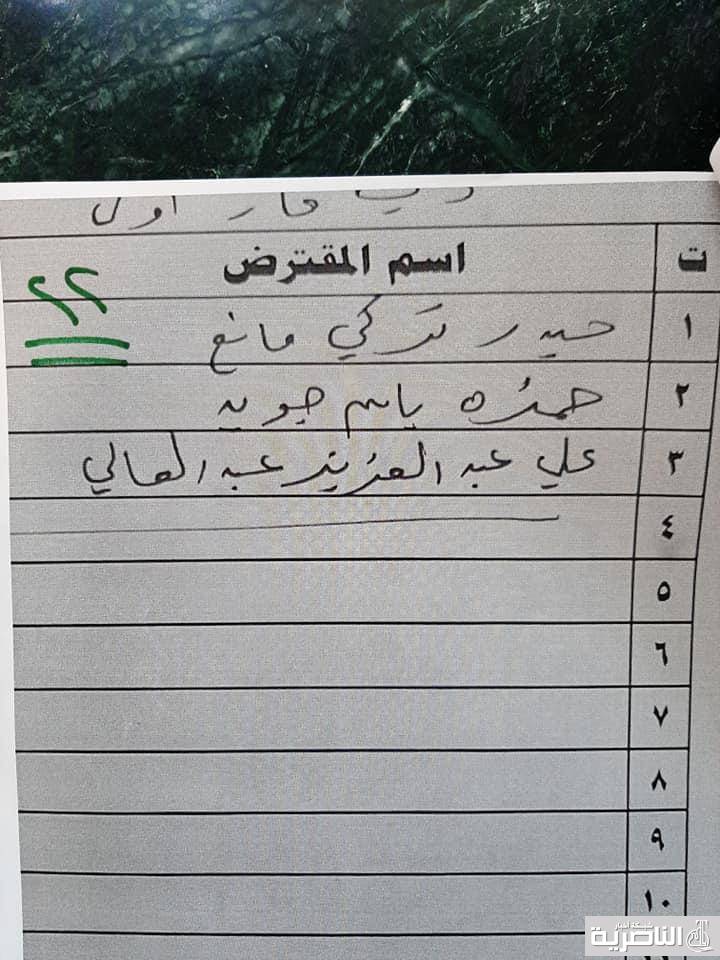 ذي قار اول
ت اسم المقترض
٢٢
١ حيدر تركي مانع
٢ حمزه باسم جويد
٣ علي عبد العزيز عبد العالي
٤
٥
٦
٧
٨
٩
١٠
١١
شبكة أخبار
الناصرية